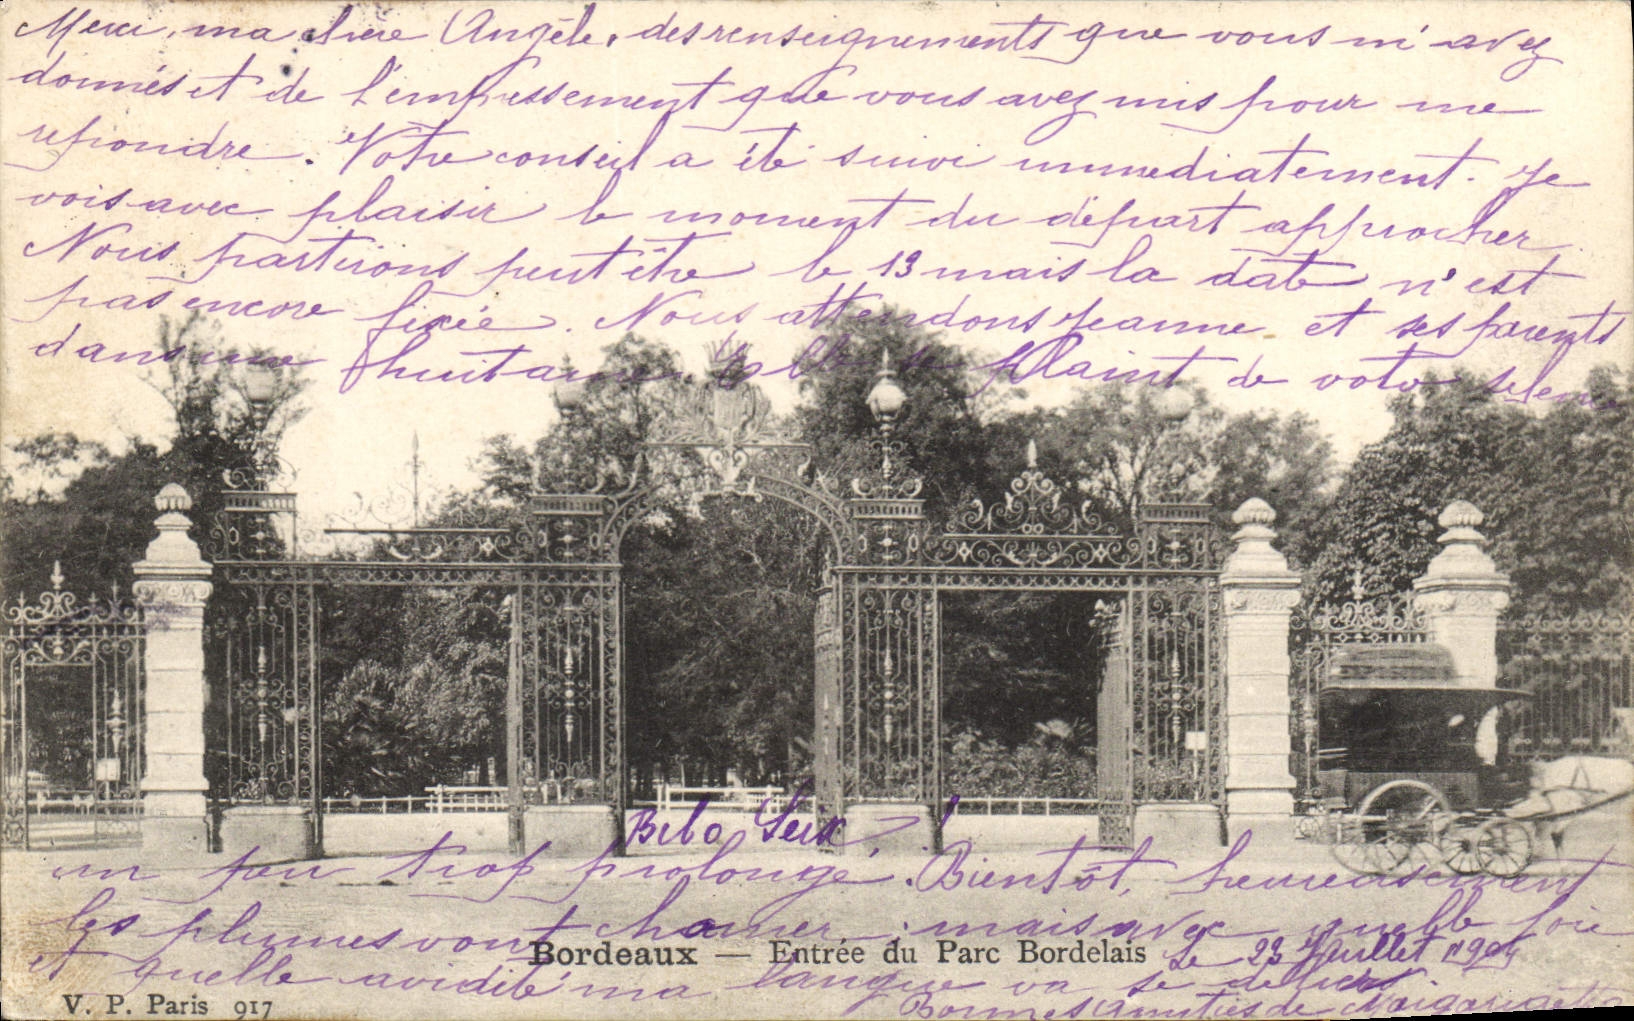 Merci, ma chère Angèle, des renseignements que vous m'avez
donnés et de l'empressement que vous avez mis pour me
repondre. Votre conseil a été suivi immediatement. Je
vois avec plaisir le moment du départ approcher.
Nous partirons peut être le 13 mais la date n'est
pas encore fixée. Nous attendons Jeanne et ses parents
dans une huitaine. Elle se plaint de votre silence
un peu trop prolongé. Bientôt, heureusement
les plumes vont chomer; mais avec quelle joie
et quelle avidité ma langue va se delier
Bordeaux — Entrée du Parc Bordelais
Le 23 Juillet 1904
Bonnes Amitiés de Marguerite
V. P. Paris 917